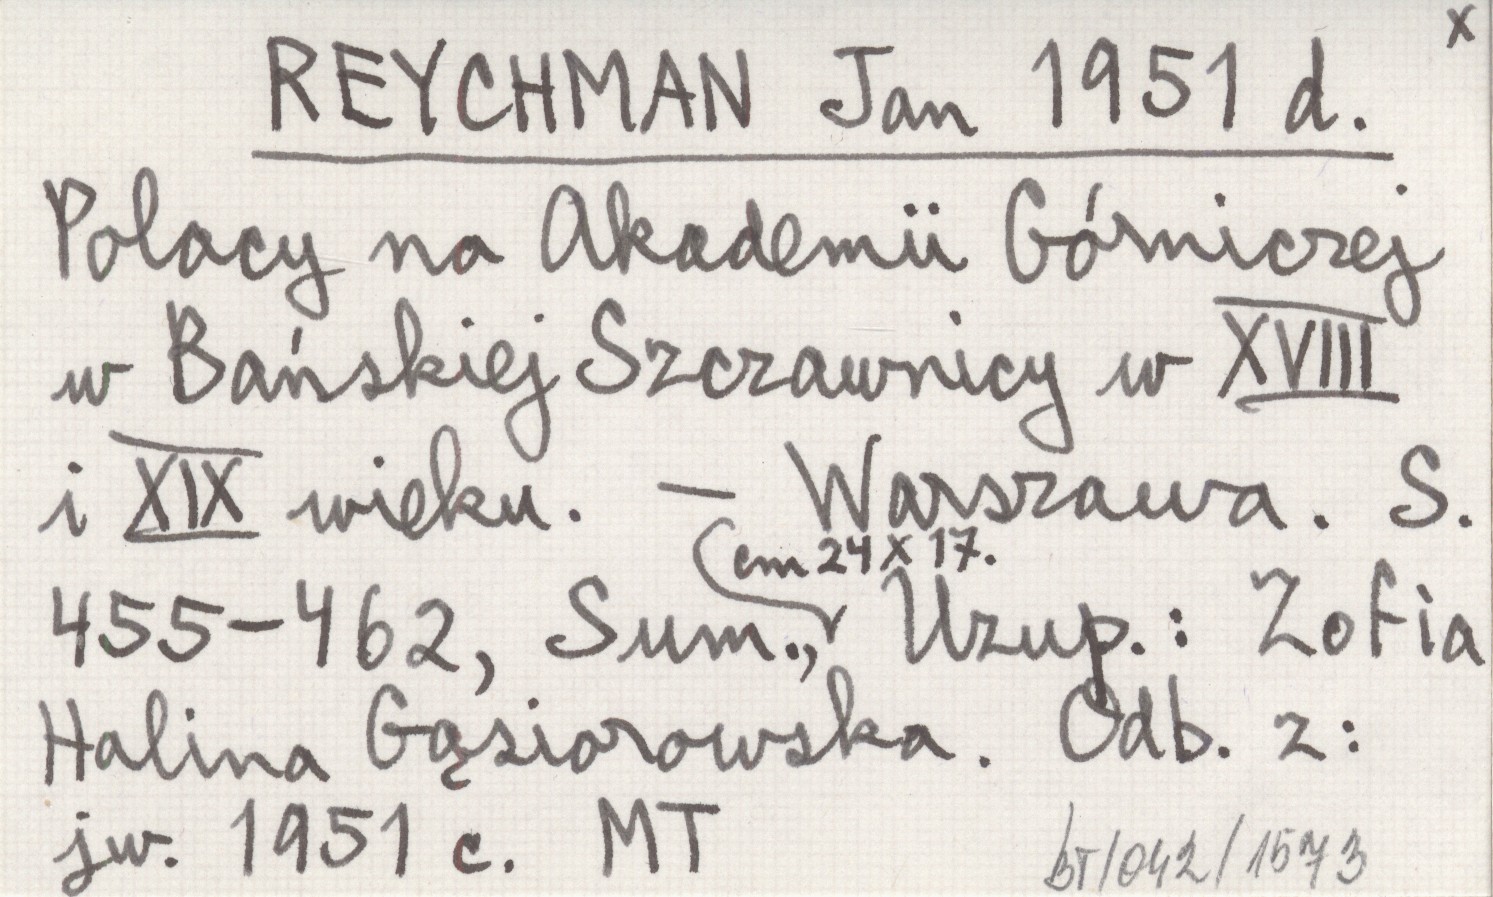 x
REYCHMAN Jan 1951 d.
Polacy na Akademii Górniczej
w Bańskiej Szczawnicy w XVIII
i XIX wieku. — Warszawa. S.
cm 24 x 17.
455-462, Sum., Uzup.: Zofia
Halina Gąsiorowska. Odb. z:
jw. 1951 c. MT
bT/042/1573